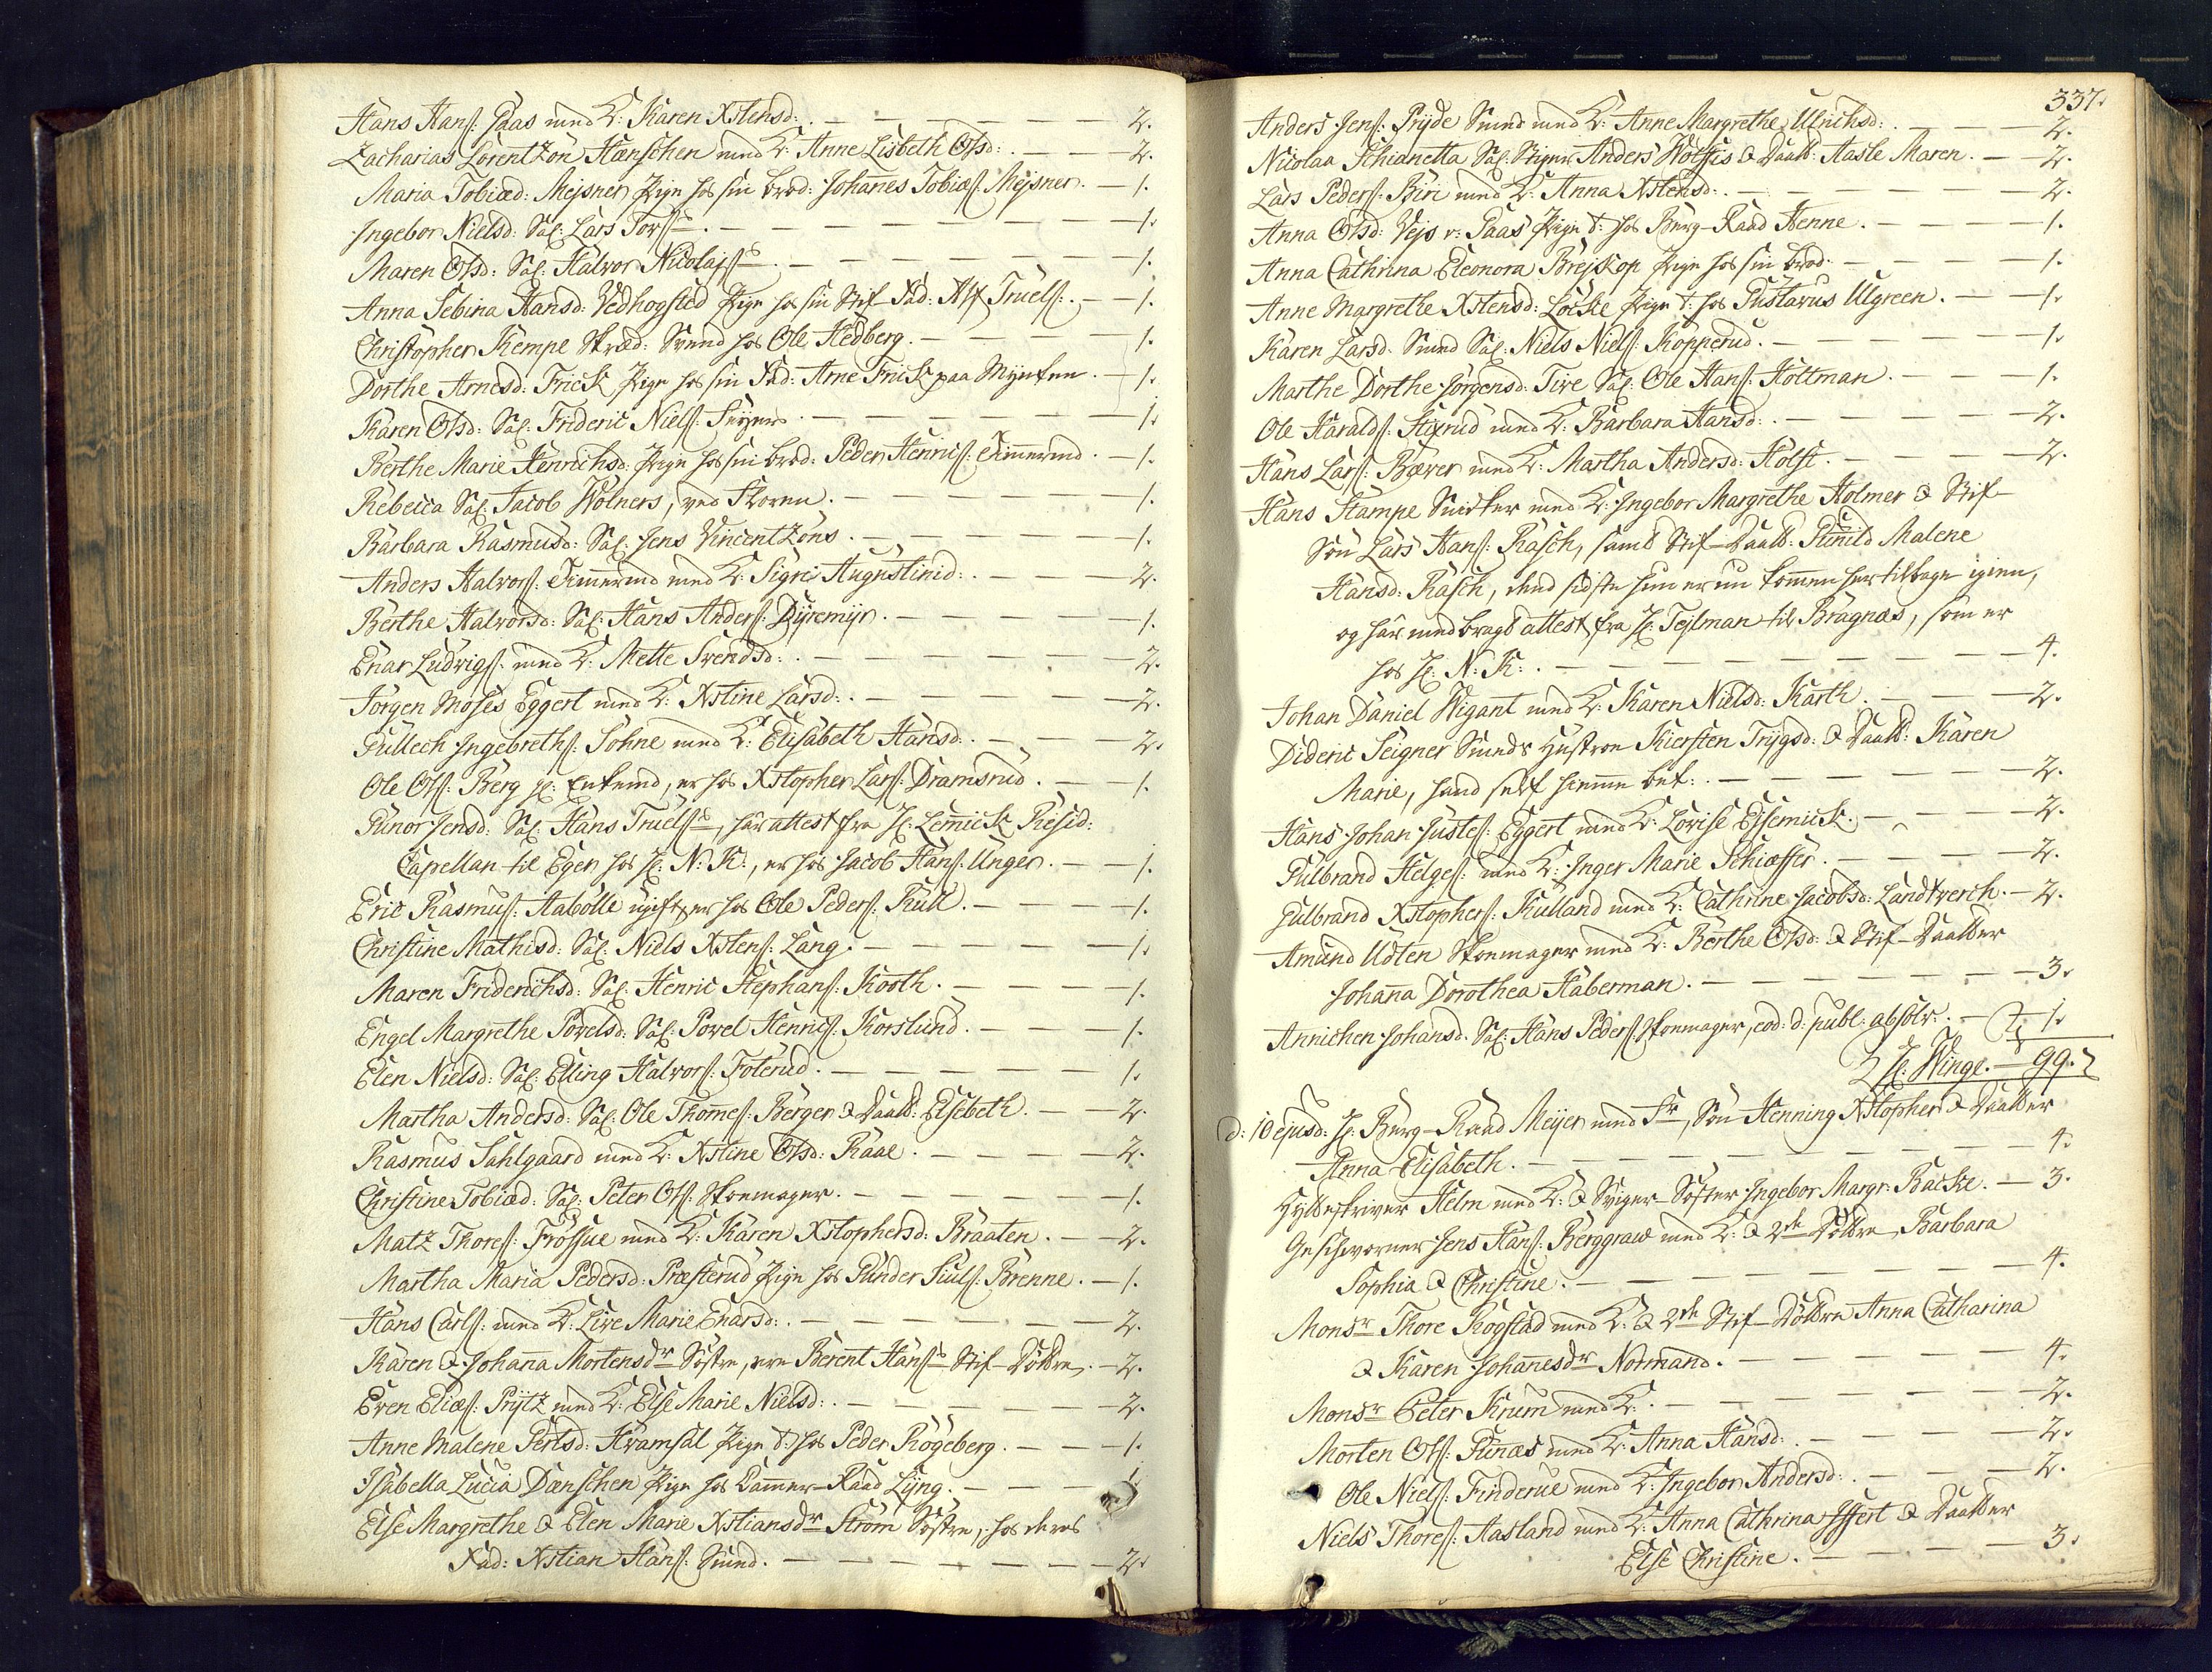 Hans Hans: Paas med K: Karen Xstensd: . — 2.
Zacharias Lorentzon Hænschen med K: Anne Lisbeth Olsd: . — 2.
Maria Tobiæd: Mejsner Pige hos sin brod: Johanes Tobiæs: Mejsner. — 1.
Ingebor Nielsd: Sal: Lars Tors: — 1.
Maren Olsd: Sal: Halvor Nicolajs: — 1.
Anna Sebina Hansd: Vedhogsted Pige hos sin Stif-Fad: Alf Truels: . — 1.
Christopher Kempe Skræd: Svend hos Ole Hedberg. — 1.
Dorthe Arnesd: Frick Pige hos sin Fad: Arne Frick paa Mynten. — 1.
Karen Olsd: Sal: Frideric Niels: — 1.
Berthe Marie Henrichsd: Pige hos sin brod: Peder Henrics: Timermd. — 1.
Rebecca Sal: Jacob Wølners, ved Skoven. — 1.
Barbara Rasmusd: Sal: Jens Vincentzøns. — 1.
Anders Halvors: Timermd med K: Sigri Augustinid: . — 2.
Berthe Halvorsd: Sal: Hans Anders: Dyremyr. — 1.
Enar Ludvigs: med K: Mette Svendsd: . — 2.
Jørgen Moses Eggert med K: Xstine Larsd: . — 2.
Gullech Ingebreths: Søhne med K: Elisabeth Hansd. — 2.
Ole Ols: Berg Enkemd, er hos Xstopher Lars: Dramsrud. — 1.
Gunor Jensd: Sal: Hans Truels:, har attest fra H: Lemick Resid:
Capellan til Eger hos H: N: K:, er hos Jacob Hans: Unger. — 1.
Eric Rasmus: Aabølle ugift, er hos Ole Peders: Rull. — 1.
Christine Mathisd: Sal: Niels Xstens: Lang. — 1.
Maren Friderichsd: Sal: Henric Stephans: Kooth. — 1.
Engel Margrethe Povelsd: Sal: Povel Henrics: Korslund. — 1.
Elen Nielsd: Sal: Elling Halvors: Foterud. — 1.
Martha Andersd: Sal: Ole Thomes: Berger & Daatt: Elsebeth. — 2.
Rasmus Sahlgaard med K: Xstine Olsd: Raae. — 2.
Christine Tobiæd: Sal: Peter Ols: Skoemager. — 1.
Matz Thores: Frøssue med K: Karen Xstophersd: Braaten. — 2.
Martha Maria Pedersd: Præsterud Pige hos Gunder Siuls: Brenne. — 1.
Hans Carls: med K: Live Marie Enarsd: . — 2.
Karen & Johana Mortensdr Søstre, ere Berent Hans: Stif-Døttre. — 2.
Even Eliæs: Prytz med K: Else Marie Nielsd: . — 2.
Anne Malene Pertsd: Hvamsal Pige t: hos Peder Rogeberg. — 1.
Isabella Lucia Dænschen Pige hos Camer-Raad Lyng. — 1.
Else Margrethe & Elen Marie Xstiansdr Strøm Søstre, hos deres
Fad: Xstian Hans: Smed. — 2.
337.
Anders Jens: Pryde Smed med K: Anne Margrethe Ulrichsd: . — 2.
Nicolaa Schianetta Sal: Stiger Anders Wolffis & Daatt: Aasle Maren. — 2.
Lars Peders: Biri med K: Anna Xstensd: . — 2.
Anna Olsd: Vejs v: Paas Pige t: hos Berg-Raad Henne. — 1.
Anna Cathrina Eleonora Brejskop Pige hos sin brod. — 1.
Anne Margrethe Xstensd: Locke Pige t: hos Gustavus Ulgreen. — 1.
Karen Larsd. Smed Sal: Niels Niels: Kopperud. — 1.
Marthe Dorthe Jørgensd: Tire Sal: Ole Hans: Holtman. — 1.
Ole Haralds: Stixrud med K: Barbara Hansd: . — 2.
Hans Lars: Bæver med K: Martha Andersd: Holst. — 2.
Hans Stampe Snicker med K: Ingebor Margrethe Holmer & Stif-
Søn Lars Hans: Rasch, samt Stif-Daatt: Gunild Malene
Hansd: Rasch, dend sidste hun er nu komen her tilbage igien,
og har med bragt attest fra H: Tejlman til Bragnæs, som er
hos H: N: K: . — 4.
Johan Daniel Wigant med K: Karen Nielsd: Karth. — 2.
Dideric Seigner Smeds Hustroe Kiersten Trygsd: & Daatt: Karen
Marie, hand self hieme bet: . — 2.
Hans Johan Justes: Eggert med K: Lovise Eisemick. — 2.
Gulbrand Helges: med K: Inger Marie Schiæffer. — 2.
Gulbrand Xstophers: Kulland med K: Cathrine Jacobsd: Landtverch. — 2.
Amund Udten Skoemager med K: Berthe Olsd: & Stif-Daatter
Johana Dorothea Haberman. — 3.
Annichen Johansd. Sal: Hans Peders: Skoemager, eod: d: publ: absolv: . — 1.
H: Winge. — 99.
d: 10 ejusd: H: Berg-Raad Meijer med Fr, Søn Henning Xstopher & Daatter
Anna Elisabeth. — 4.
Hytteskriver Helm med K: & Sviger-Søster Ingebor Margr: Backe. — 3.
Geschworner Jens Hans: Berggraw med K: & 2de Døttre, Barbara
Sophia & Christine. — 4.
Monsr Thore Rogstad med K: & 2de Stif-Døttre Anna Catharina
& Karen Johanesdr Normand. — 4.
Monsr Peter Krum med K: . — 2.
Morten Ols: Gunæs med K: Anna Hansd: . — 2.
Ole Niels: Finderue med K: Ingebor Andersd: . — 2.
Niels Thores: Aasland med K: Anna Cathrina Iffert & Daatter
Else Christine. — 3.